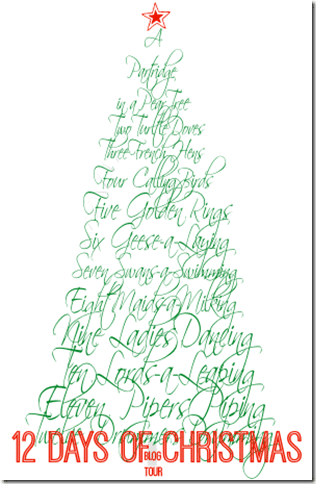 A
Partridge
in a Pear Tree
Two Turtle Doves
Three French Hens
Four Calling Birds
Five Golden Rings
Six Geese-a-Laying
Seven Swans-a-Swimming
Eight Maids-a-Milking
Nine Ladies Dancing
Ten Lords-a-Leaping
Eleven Pipers Piping
Twelve Drummers Drumming
12 DAYS OF CHRISTMAS
BLOG
TOUR